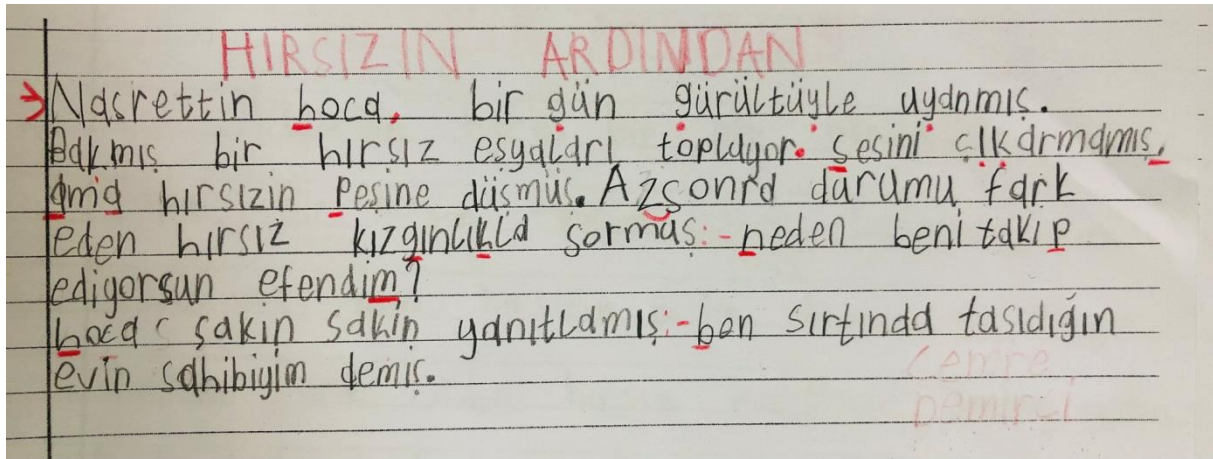 HIRSIZIN ARDINDAN
Nasrettin hoca, bir gün gürültüyle uyanmış.
Bakmış bir hırsız eşyaları topluyor. sesini çıkarmamış,
ama hırsızin peşine düşmüş. Az sonra durumu fark
eden hırsız kızgınlıkla sormuş: -neden beni takip
ediyorsun efendim?
hoca sakin sakin yanıtlamış: -ben sırtında tasıdığın
evin sahibiyim demiş.
Cemre
Demirci